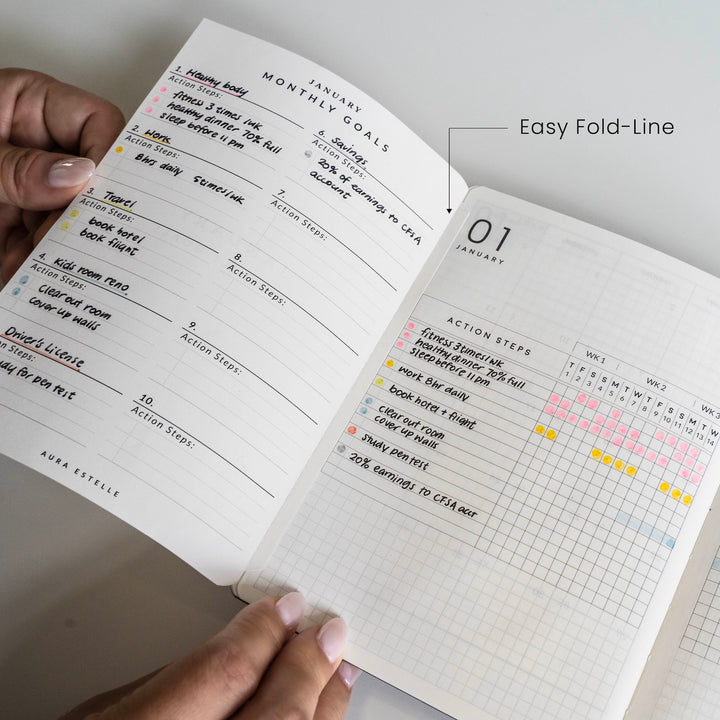 Easy Fold-Line
JANUARY
MONTHLY GOALS
1. Healthy body
Action Steps:
fitness 3 times /wk
healthy dinner 70% full
sleep before 11 pm
2. Work
Action Steps:
8hrs daily 5times/wk
3. Travel
Action Steps:
book hotel
book flight
4. Kids room reno.
Action Steps:
Clear out room
cover up walls
Driver's License
Action Steps:
study for pen test
6. Savings
Action Steps:
20% of earnings to CFSA
account
7.
Action Steps:
8.
Action Steps:
9.
Action Steps:
10.
Action Steps:
AURA ESTELLE
01
JANUARY
ACTION STEPS
fitness 3times/wk
healthy dinner 70% full
sleep before 11 pm
work 8hr daily
book hotel + flight
clear out room
cover up walls
study pen test
20% earnings to CFSA acct
WK1 WK2 WK3
T F S S M T W T F S S M T W
1 2 3 4 5 6 7 8 9 10 11 12 13 14